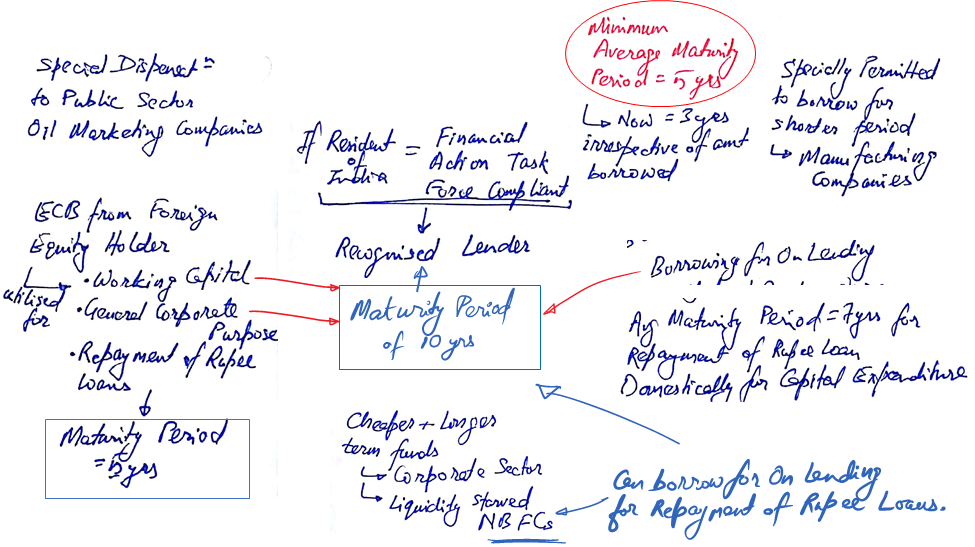 Special Dispensatn
to Public Sector
Oil Marketing Companies
ECB from Foreign
Equity Holder
utilised for
• Working Capital
• General Corporate
Purpose
• Repayment of Rupee
loans
Maturity Period
= 5 yrs
If Resident of India = Financial
Action Task
Force Compliant
Recognised Lender
Maturity Period
of 10 yrs
Cheaper + Longer
term funds
Corporate Sector
Liquidity starved
NBFCs
Minimum
Average Maturity
Period = 5 yrs
Now = 3 yrs
irrespective of amt
borrowed
Specially Permitted
to borrow for
shorter period
Manufacturing
Companies
Borrowing for On Lending
Avg Maturity Period = 7 yrs for
Repayment of Rupee Loan
Domestically for Capital Expenditure
Can borrow for On Lending
for Repayment of Rupee Loans.